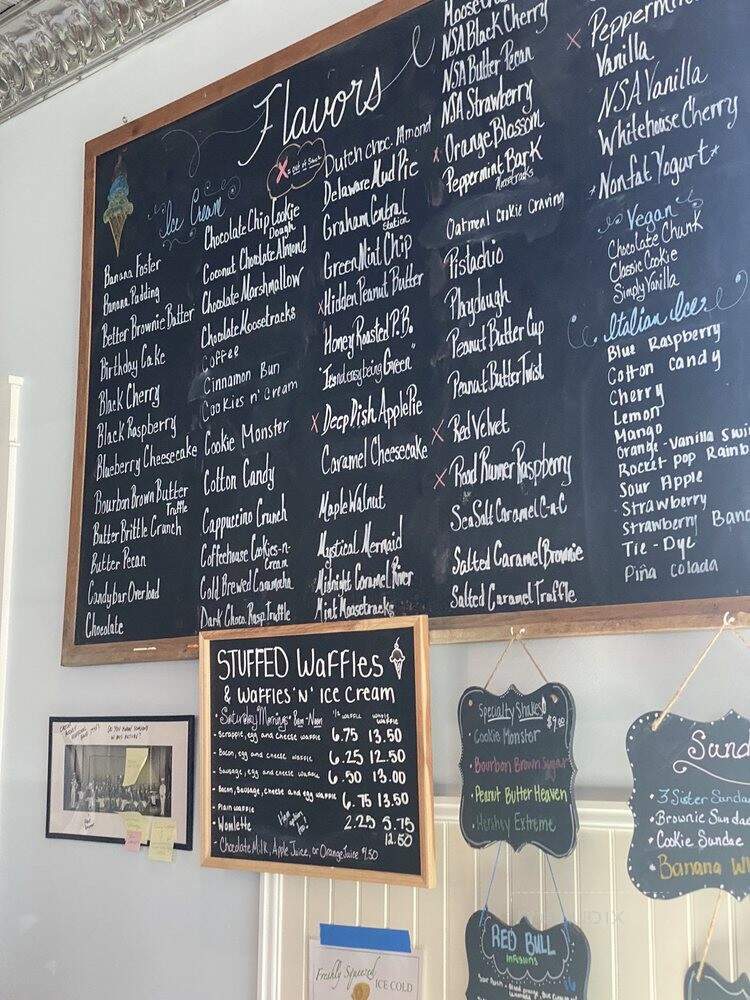 Flavors
X = out of Stock
Ice Cream
Banana Foster
Banana Pudding
Better Brownie Batter
Birthday Cake
Black Cherry
Black Raspberry
Blueberry Cheesecake
Bourbon Brown Butter
Truffle
Butter Brittle Crunch
Butter Pecan
Candybar Overload
Chocolate
Chocolate Chip Cookie
Dough
Coconut Chocolate Almond
Chocolate Marshmallow
Chocolate Moosetracks
Coffee
Cinnamon Bun
Cookies n' Cream
Cookie Monster
Cotton Candy
Cappuccino Crunch
Coffeehouse Cookies-n-
Cream
Cold Brewed
Dark Choco. Rasp. Truffle
Dutch Choc. Almond
Delaware Mud Pie
Graham Central
Station
Green Mint Chip
X Hidden Peanut Butter
Honey Roasted P.B.
being Green"
X Deep Dish Apple Pie
Caramel Cheesecake
Maple Walnut
Mystical Mermaid
Midnight Caramel River
Mint Moosetracks
NSA Black Cherry
NSA Butter Pecan
NSA Strawberry
X Orange Blossom
Peppermint Bark
Moosetracks
Oatmeal Cookie Craving
Pistachio
Playdough
Peanut Butter Cup
Peanut Butter Twist
X Red Velvet
X Road Runner Raspberry
Sea Salt Caramel C-n-C
Salted Caramel Brownie
Salted Caramel Truffle
X Peppermint
Vanilla
NSA Vanilla
Whitehouse Cherry
*Nonfat Yogurt*
Vegan
Chocolate Chunk
Classic Cookie
Simply Vanilla
Italian Ice
Blue Raspberry
Cotton Candy
Cherry
Lemon
Mango
Orange-Vanilla
Rocket Pop
Sour Apple
Strawberry
Strawberry
Tie-Dye
Piña Colada
STUFFED Waffles
& Waffles 'N' Ice Cream
Saturday Mornings 8am-Noon
1/2 waffle whole waffle
- Scrapple, egg and cheese waffle 6.75 13.50
- Bacon, egg and cheese waffle 6.25 12.50
- Sausage, egg and cheese waffle 6.50 13.00
- Bacon, Sausage, cheese and egg waffle 6.75 13.50
- Plain waffle 2.25 5.75
- Womlette 12.50
- Chocolate Milk, Apple Juice, or Orange Juice
Specialty Shakes $9.00
• Cookie Monster
• Bourbon Brown Sugar
• Peanut Butter Heaven
• Hershey Extreme
• 3 Sister
• Brownie
• Cookie Sundae
• Banana
RED BULL
INFUSIONS
DO YOU KNOW SOMEONE
IN THIS PICTURE?
Freshly Squeezed
ICE COLD